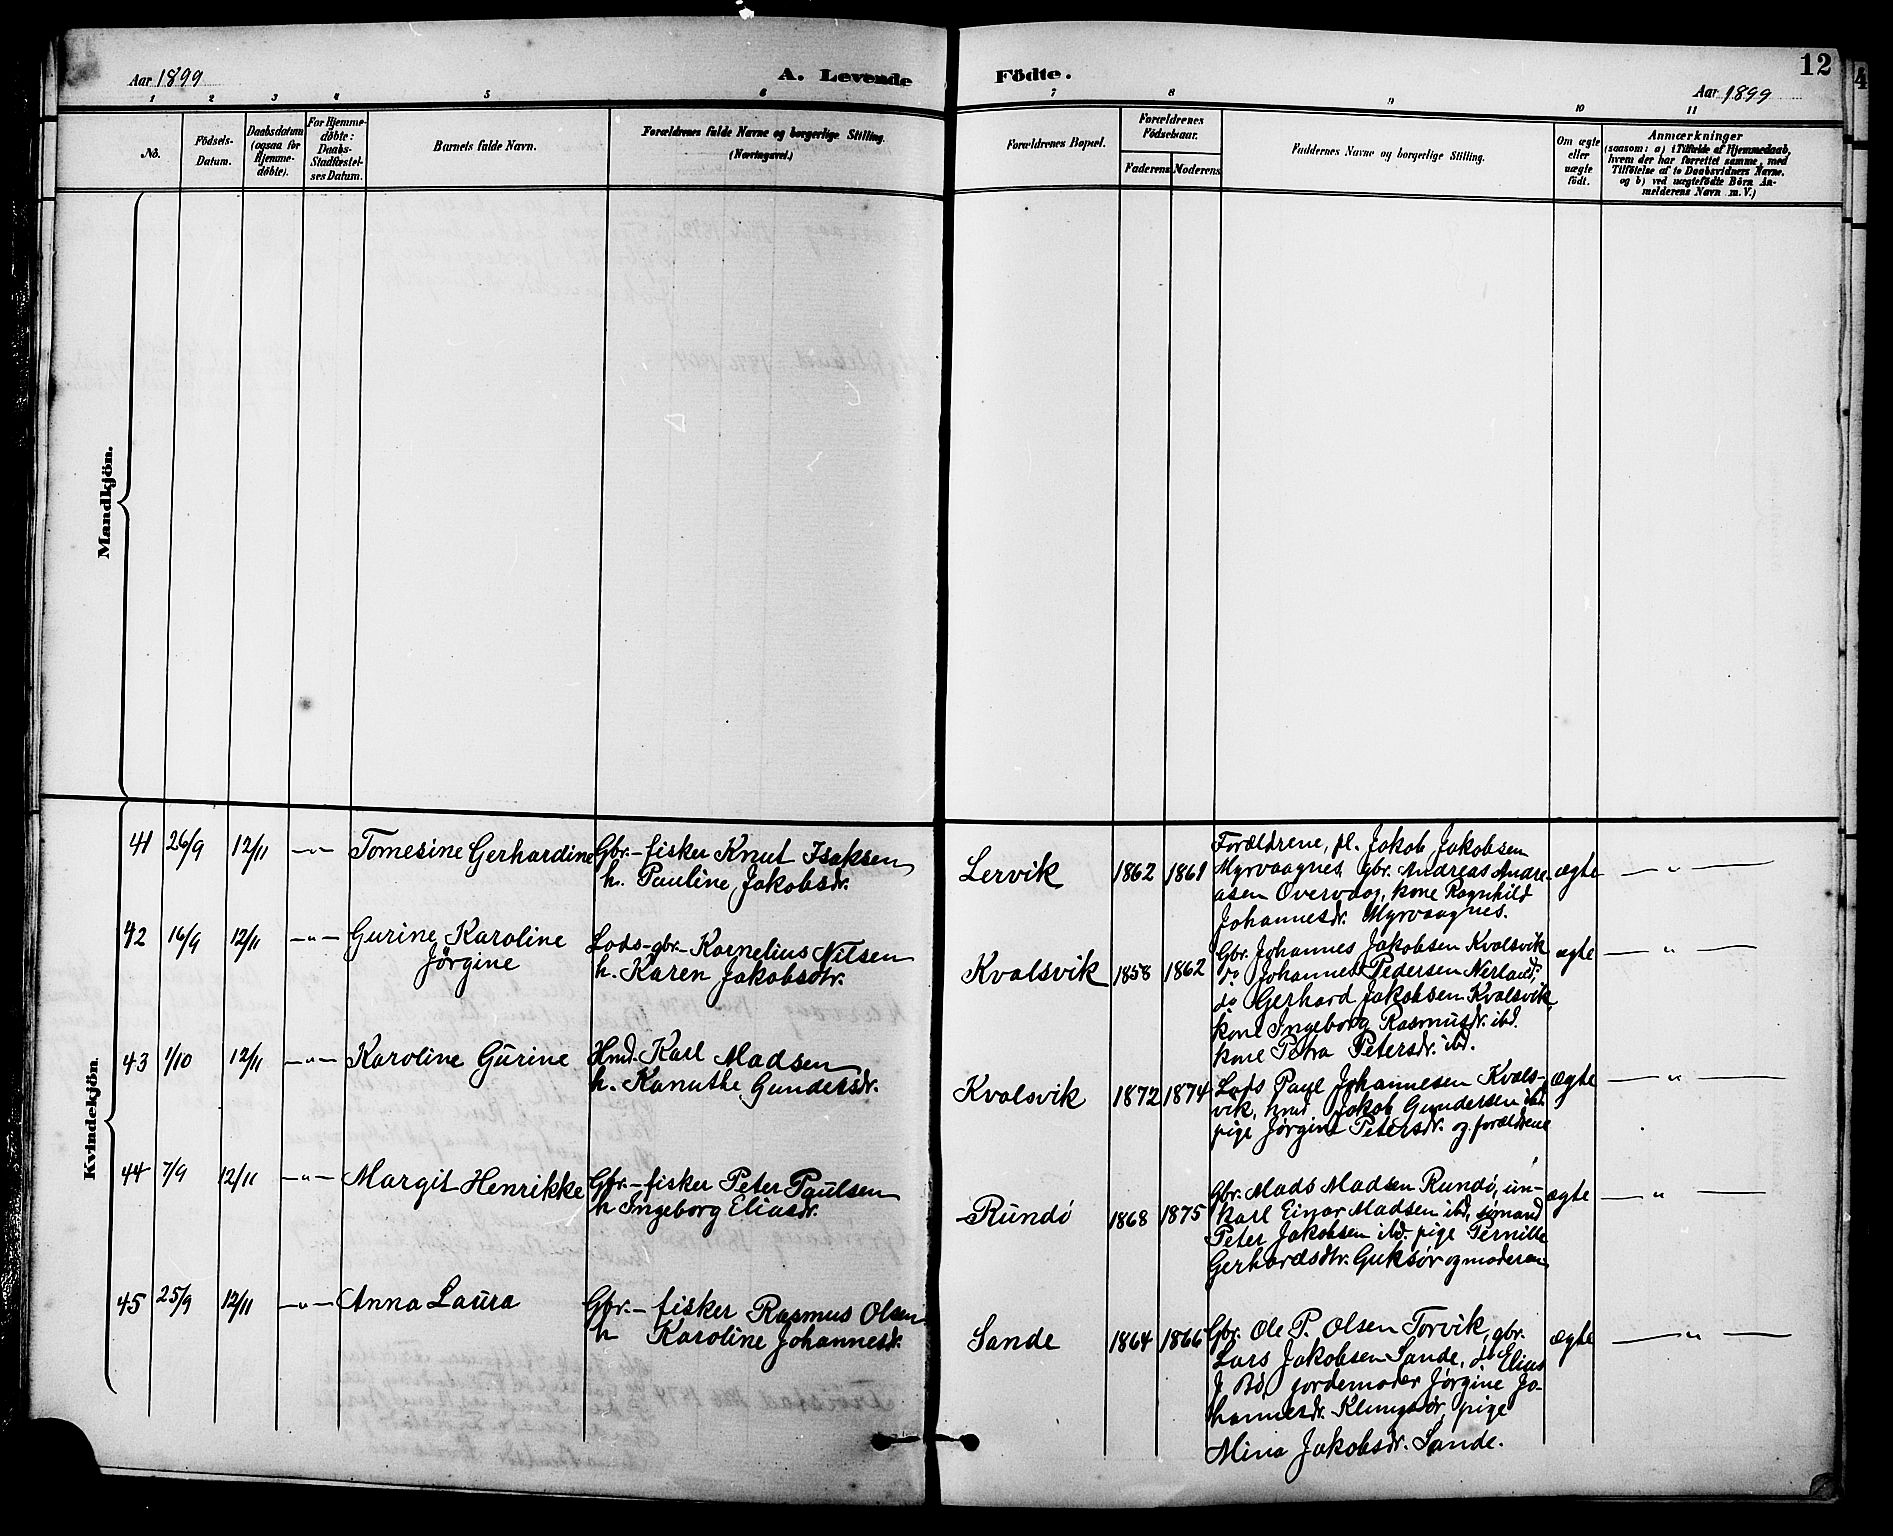 Aar 1899
A. Levende Födte.
12
Aar 1899
1 2 3 4 5 6 7 8 9 10 11
No.
Födsels-
Datum.
Daabsdatum
(ogsaa for
Hjemme-
döbte).
For Hjemme-
döbte:
Daabs-
Stadfæstel-
ses Datum.
Barnets fulde Navn.
Forældrenes fulde Navne og borgerlige Stilling.
(Næringsvei.)
Forældrenes Bopæl.
Forældrenes
Födselsaar.
Faderens Moderens
Faddernes Navne og borgerlige Stilling.
Om ægte
eller
uægte
født.
Anmærkninger
(saasom: a) i Tilfælde af Hjemmedaab,
hvem der har forrettet samme, med
Tilföielse af to Daabsvidners Navne.
og b) ved uægtefödte Börn An-
melderens Navn m. V.)
Mandkjön.
Kvindekjön.
41 26/9 12/11 —"— Tomesine Gerhardine
Gbr.-fisker Knut Isaksen
h. Pauline Jakobsdr.
Lervik 1862 1861
Forældrene, pl. Jakob Jakobsen
Myrvaagnes gbr. Andreas Andre-
asen Overvaag, kone Ragnhild
Johannesdr. Myrvaagnes.
ægte — " —
42 16/9 12/11 —"— Gurine Karoline
Jørgine
Lods-gbr.-Kornelius Nilsen
h. Karen Jakobsdtr.
Kvalsvik 1858 1862
Gbr. Johannes Jakobsen Kvalsvik
do Johannes Pedersen Nerland,
do Gerhard Jakobsen Kvalsvik,
kone Ingeborg Rasmusdr. ibd.
kone Petra Petersdr. ibd.
ægte — " —
43 1/10 12/11 —"— Karoline Gurine
Hmd. Karl Madsen
h. Kanuthe Gundersdr.
Kvalsvik 1872 1874
Lods Paul Johannesen Kvals-
vik, hmd. Jakob Gundersen ibd.
pige Jørgine Petersdr. og forældrene
ægte — " —
44 7/9 12/11 —"— Margit Henrikke
Gbr.-fisker Peter Paulsen
h Ingeborg Eliasdr.
Rundø 1868 1875
Gbr. Mads Madsen Rundø, un-
karl Einar Madsen ibd, sømand
Peter Jakobsen ibd. pige Pernille
Gerhardsdtr. Guksør og moderen
ægte — " —
45 25/9 12/11 —"— Anna Laura
Gbr.-fisker Rasmus Olsen
h Karoline Johannesdr.
Sande 1864 1866
Gbr. Ole P. Olsen Torvik, gbr.
Lars Jakobsen Sande, do Elias
J. Bø, jordemoder Jørgine Jo-
hannesdr. pige
Mina Jakobsdr. Sande.
ægte — " —